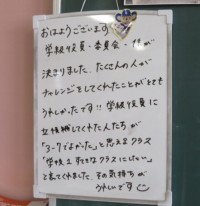 おはようございます
学校役員・委員会・係が
決まりました。たくさんの人が
チャレンジをしてくれたことがとても
うれしかったです!! 学級役員に
立候補してくれた人たちが
「3-7でよかった」と思えるクラス
"学校1 すてきなクラスにしたい"
と言てくれました。その気持ちが
うれしいです